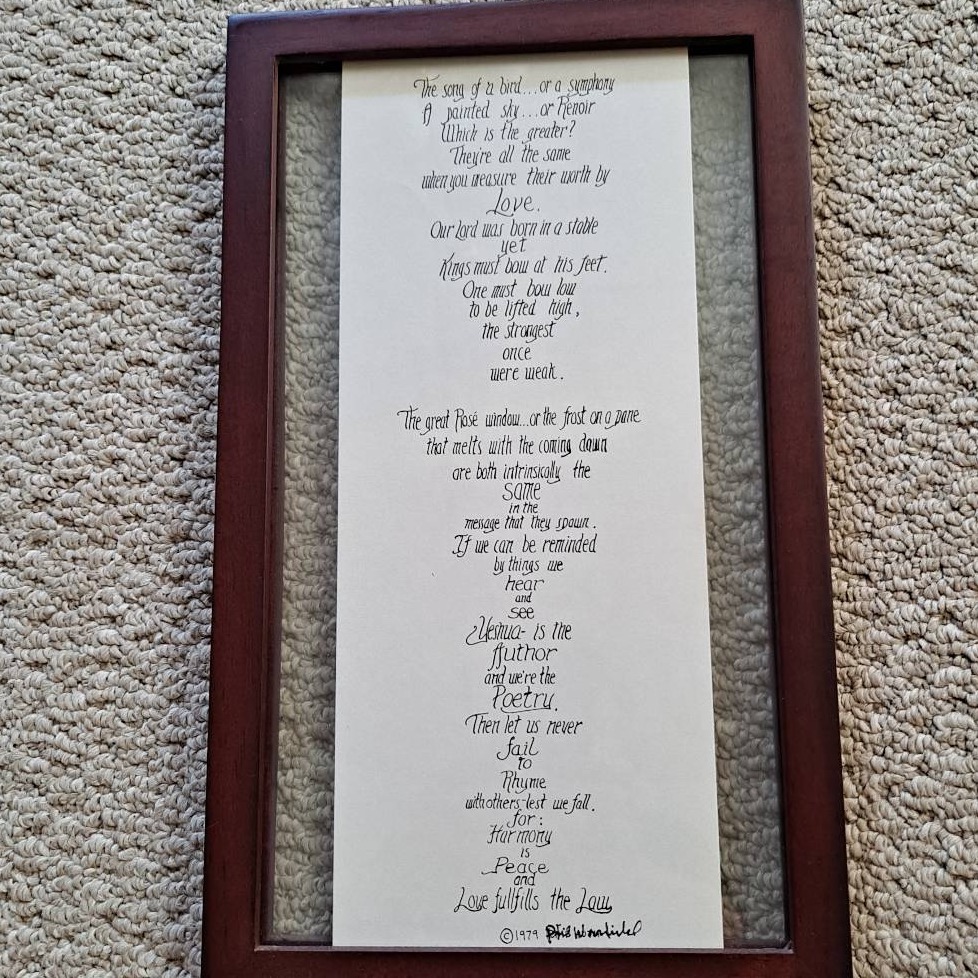 The song of a bird...or a symphony
A painted sky...or Renoir
Which is the greater?
They're all the same
when you measure their worth by
Love.
Our Lord was born in a stable
yet
Kings must bow at his feet.
One must bow low
to be lifted high,
the strongest
once
were weak.
The great Rosé window...or the frost on a pane
that melts with the coming dawn
are both intrinsically the
same
in the
message that they spawn.
If we can be reminded
by things we
hear
and
see
Yeshua- is the
Author
and we're the
Poetry.
Then let us never
fail
to
Rhyme
with others-lest we fall.
for:
Harmony
is
Peace
and
Love fullfills the Law
©1979